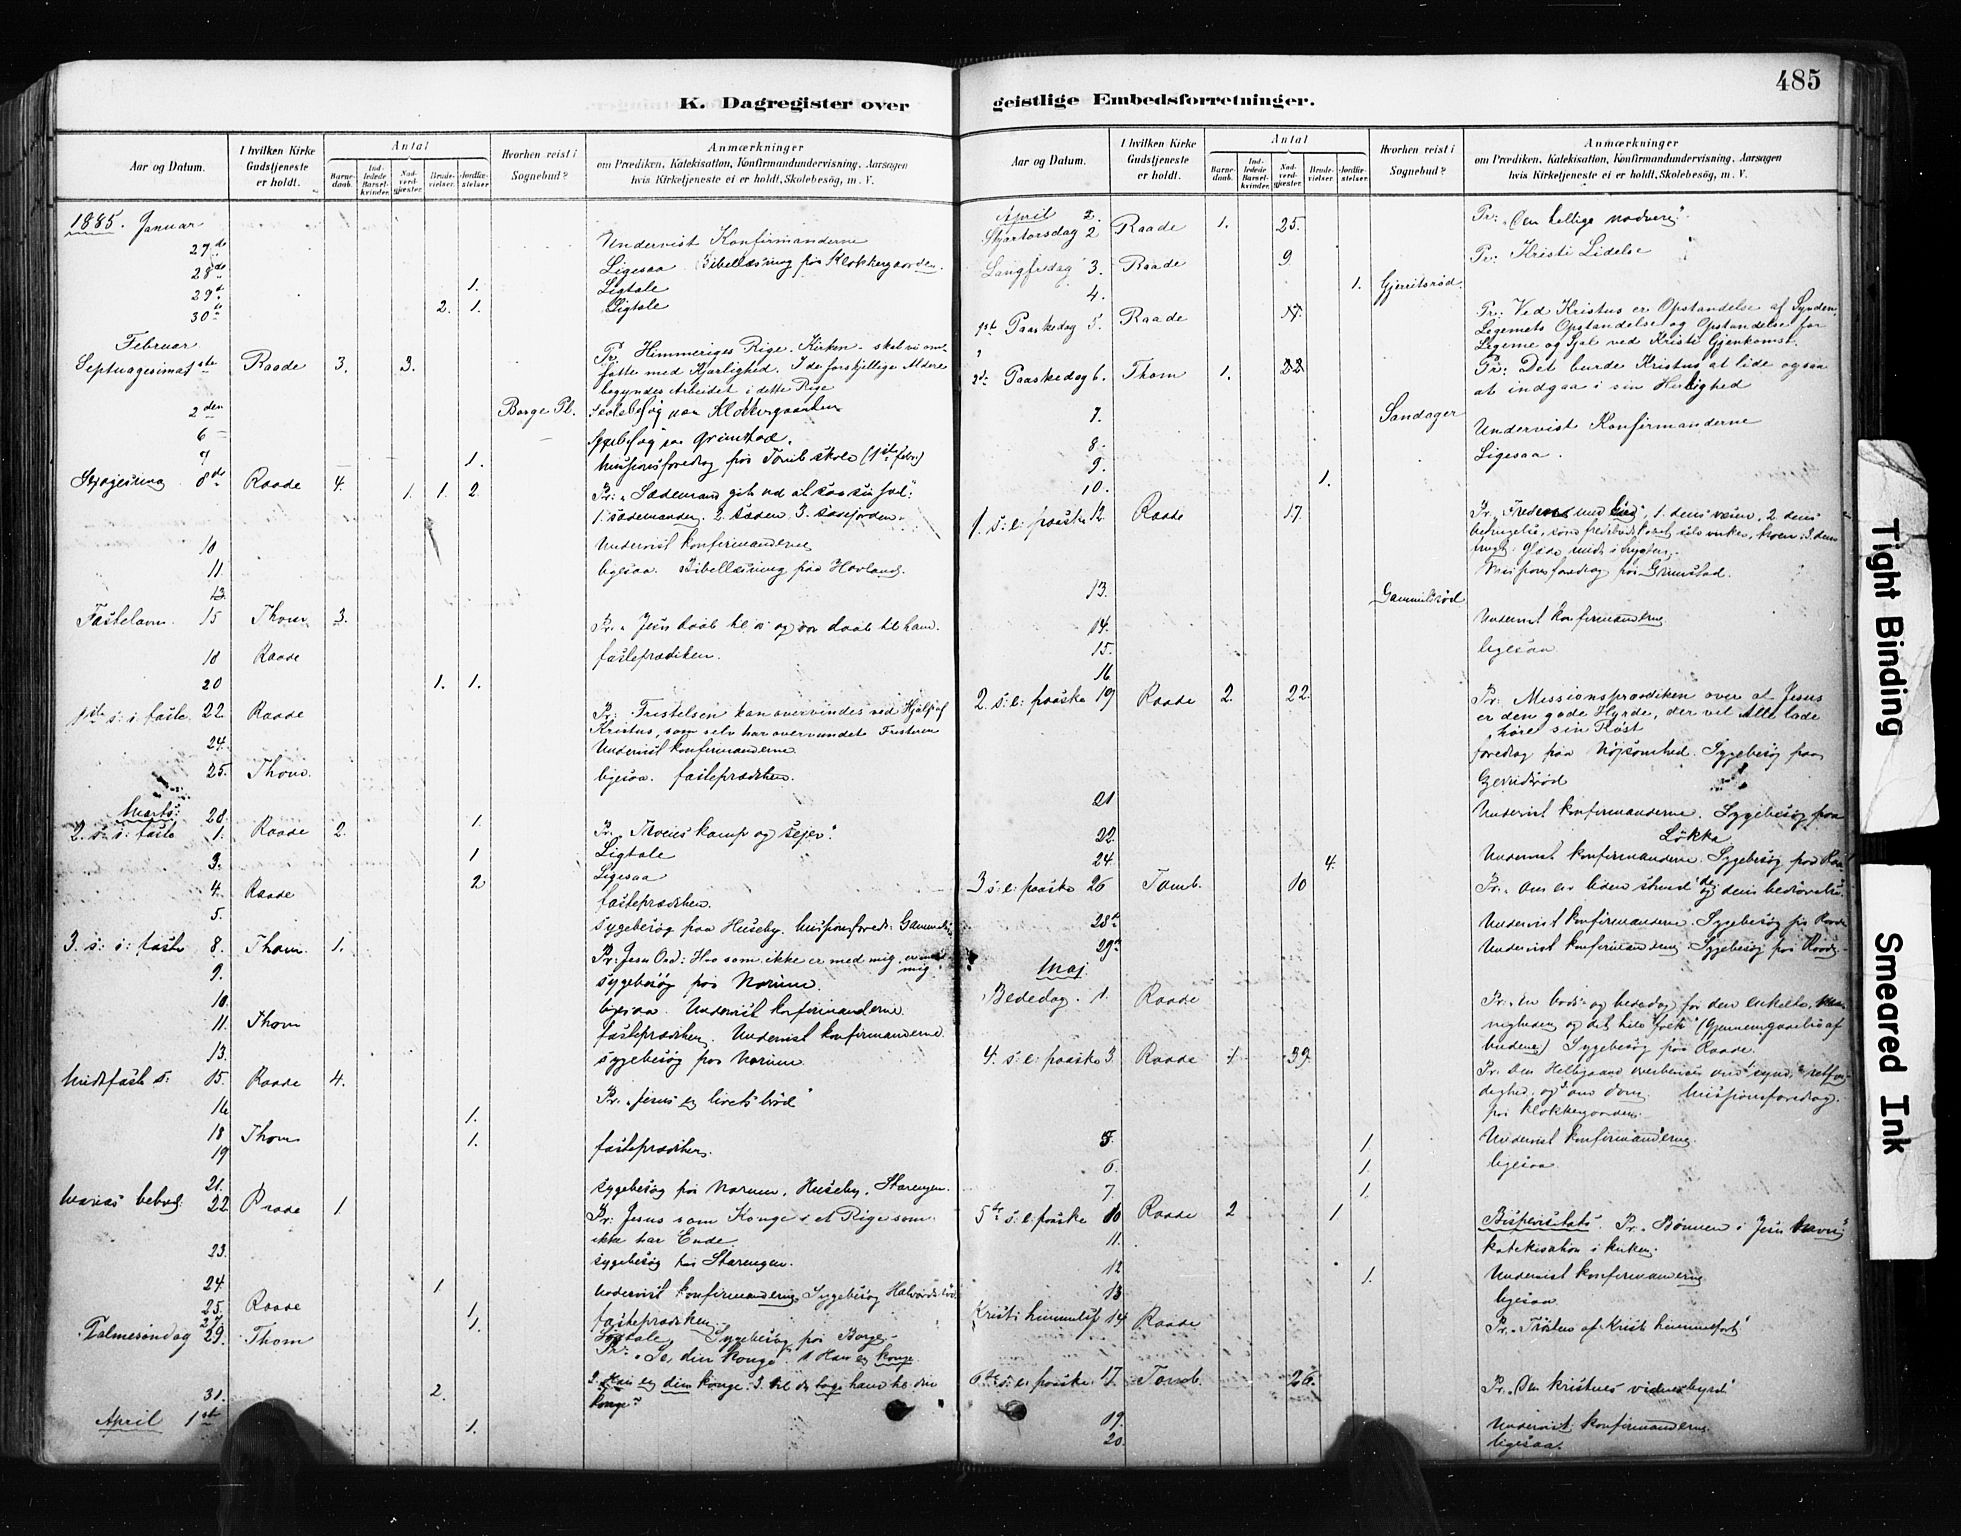 485
K. Dagregister over
geistlige Embedsforretninger.
Aar og Datum.
I hvilken Kirke Gudstjeneste er holdt.
Antal
Barne-daab.
Ind-ledede Barsel-kvinder.
Nad-verd-gjæster.
Brude-vielser.
Jordfæ-stelser.
Hvorhen reist i Sognebud?
Anmærkninger
om Prædiken, Katekisation, Konfirmandundervisning, Aarsagen
hvis Kirketjeneste ei er holdt, Skolebesøg, m. V.
1885. Januar
27de Undervist Konfirmanderne
28de Ligesaa. Bibellæsning paa Klokkergaarden.
29de 1. Ligtale
30te 2. 1. Ligtale
Februar
Septuagesima 1ste Raade 3. 3. Pr. Himmeriges Rige. Kirken. skal vi om-
fatte med Kjærlighed. I de forskjellige Aldere
begyndes Arbeidet i dette Rige
2den Borge Pl. Skolebesøg paa Klokkergaarden
6 – Sygebesøg paa Grimstad.
7 1. Missionsforedrag paa Tomb skole (1ste febr.)
8de Raade 4. 1. 1. 2. Pr. "Sædemand gik ud at saa sin sæd".
1. sædemanden. 2. sæden 3. sæjorden.
10 Undervist konfirmanderne
11. ligesaa. Bibellæsning paa Hovland.
13.
Fastelavn. 15 Thom 3. Pr. "Jesu daab til os og vor daab til ham.
18 Raade fasteprædiken.
20 1. 1.
1ste s: i: faste 22. Raade Pr: Fristelsen kan overvindes ved Hjælp af
Kristus, som selv har overvundet Fristeren
24. Undervist konfirmanderne.
25. Thom. ligesaa. fasteprædiken.
Marts: 28. 1.
2. s: i: faste 1. Raade 2. Pr. "Troens kamp og sejer".
1 Ligtale
3. 2 Ligesaa
4. Raade fasteprædiken.
5. Sygebesøg paa Huseby.
3. s: i: faste 8. Thom. 1. Pr: Jesu Ord: Hvo som ikke er med mig, er mod
mig.
9. sygebesøg paa Norum.
10. ligesaa. Undervist konfirmanderne
11. Thom fasteprædiken. Undervist konfirmanderne
13. sygebesøg paa Norum.
Midfaste s: 15. Raade 4. Pr. "Jesus er livets brød"
16 1.
18 Thom 1. fasteprædiken.
19
21. sygebesøg paa Norum, Huseby, Starengen.
Marias bebud. 22. Raade 1 Pr: Jesus som Konge i et Rige som
ikke har Ende
23. sygebesøg paa Starengen.
24. 1 undervist konfirmanderne Sygebesøg
25. Raade 1. fasteprædiken.
27. 1. Ligtale, Sygebesøg paa Borge
Palmesøndag 29. Thom Pr: "Se, din konge". 1 Han er konge
2. Han er din konge. 3.
31. 2. konge?
April 1ste 1.
Aar og Datum.
I hvilken Kirke Gudstjeneste er holdt.
Antal
Barne-daab.
Ind-ledede Barsel-kvinder.
Nad-verd-gjæster.
Brude-vielser.
Jordfæ-stelser.
Hvorhen reist i Sognebud?
Anmærkninger
om Prædiken, Katekisation, Konfirmandundervisning, Aarsagen
hvis Kirketjeneste ei er holdt, Skolebesøg, m. V.
April 2.
Skjærtorsdag 2 Raade 1. 25. Pr: "Den hellige nadvere".
Langfredag 3. Raade 9 Pr: Kristi Lidelse
4. 1. Gjerritsrød.
1ste Paaskedag 5. Raade 17. Pr: Ved Kristus er Opstandelse af Synden,
Legemets Opstandelse og Opstandelse for
Legeme og Sjæl ved Kristi Gjenkomst.
2de Paaskedag 6. Thom 1. 22 Pr: Det burde Kristus at lide og saa
at indgaa i sin Herlighed
7. Sandager Undervist Konfirmanderne
8. Ligesaa.
9.
10. 1.
1. s: e: paaske 12. Raade 17.
13. Gammelsrød Missionsforedrag paa Grimstad.
14. Undervist konfirmanderne
15. ligesaa
16
2. s: e: paaske 19 Raade 2. 22. Pr: Missionsprædiken over at Jesus
er den gode Hyrde, der vil Alle lade
høre sin Røst
foredrag paa Nøjsomhed. Sygebesøg paa
21 Undervist konfirmanderne. Sygebesøg paa
22. Løkka
24. 4. Undervist konfirmanderne. Sygebesøg paa
3 s: e: paaske 26 Tomb. 10 Pr. "Om en liden stund
28de Undervist konfirmanderne. Sygebesøg paa Raade
29de Undervist konfirmanderne Sygebesøg paa Raade
Maj
Bededag. 1. Raade Pr. "En bods og bededag for den enkelte, men
nigheden og det hele folk" (Gjennemgaaelse af
budene) Sygebesøg paa Raade.
4: s: e: paaske 3 Raade 1 39.
Missionsforedrag
paa Klokkergaarden.
5. 1. Undervist konfirmanderne.
6. 1. ligesaa
7. 1.
5te s: e: paaske 10 Raade 2 1 Bispevisitats. Pr. "Bønnen i Jesu navn"
11. Katekisation i kirken.
12 1. Undervist konfirmanderne
13 ligesaa
Kristi himmelf. 14 Raade Pr. "Trøsten af Kristi himmelfart"
6te s: e: paaske 17. Tomb. 26. Pr. "Den kristnes vidnesbyrd"
19. Undervist konfirmanderne
20. ligesaa.
Tight Binding
Smeared Ink